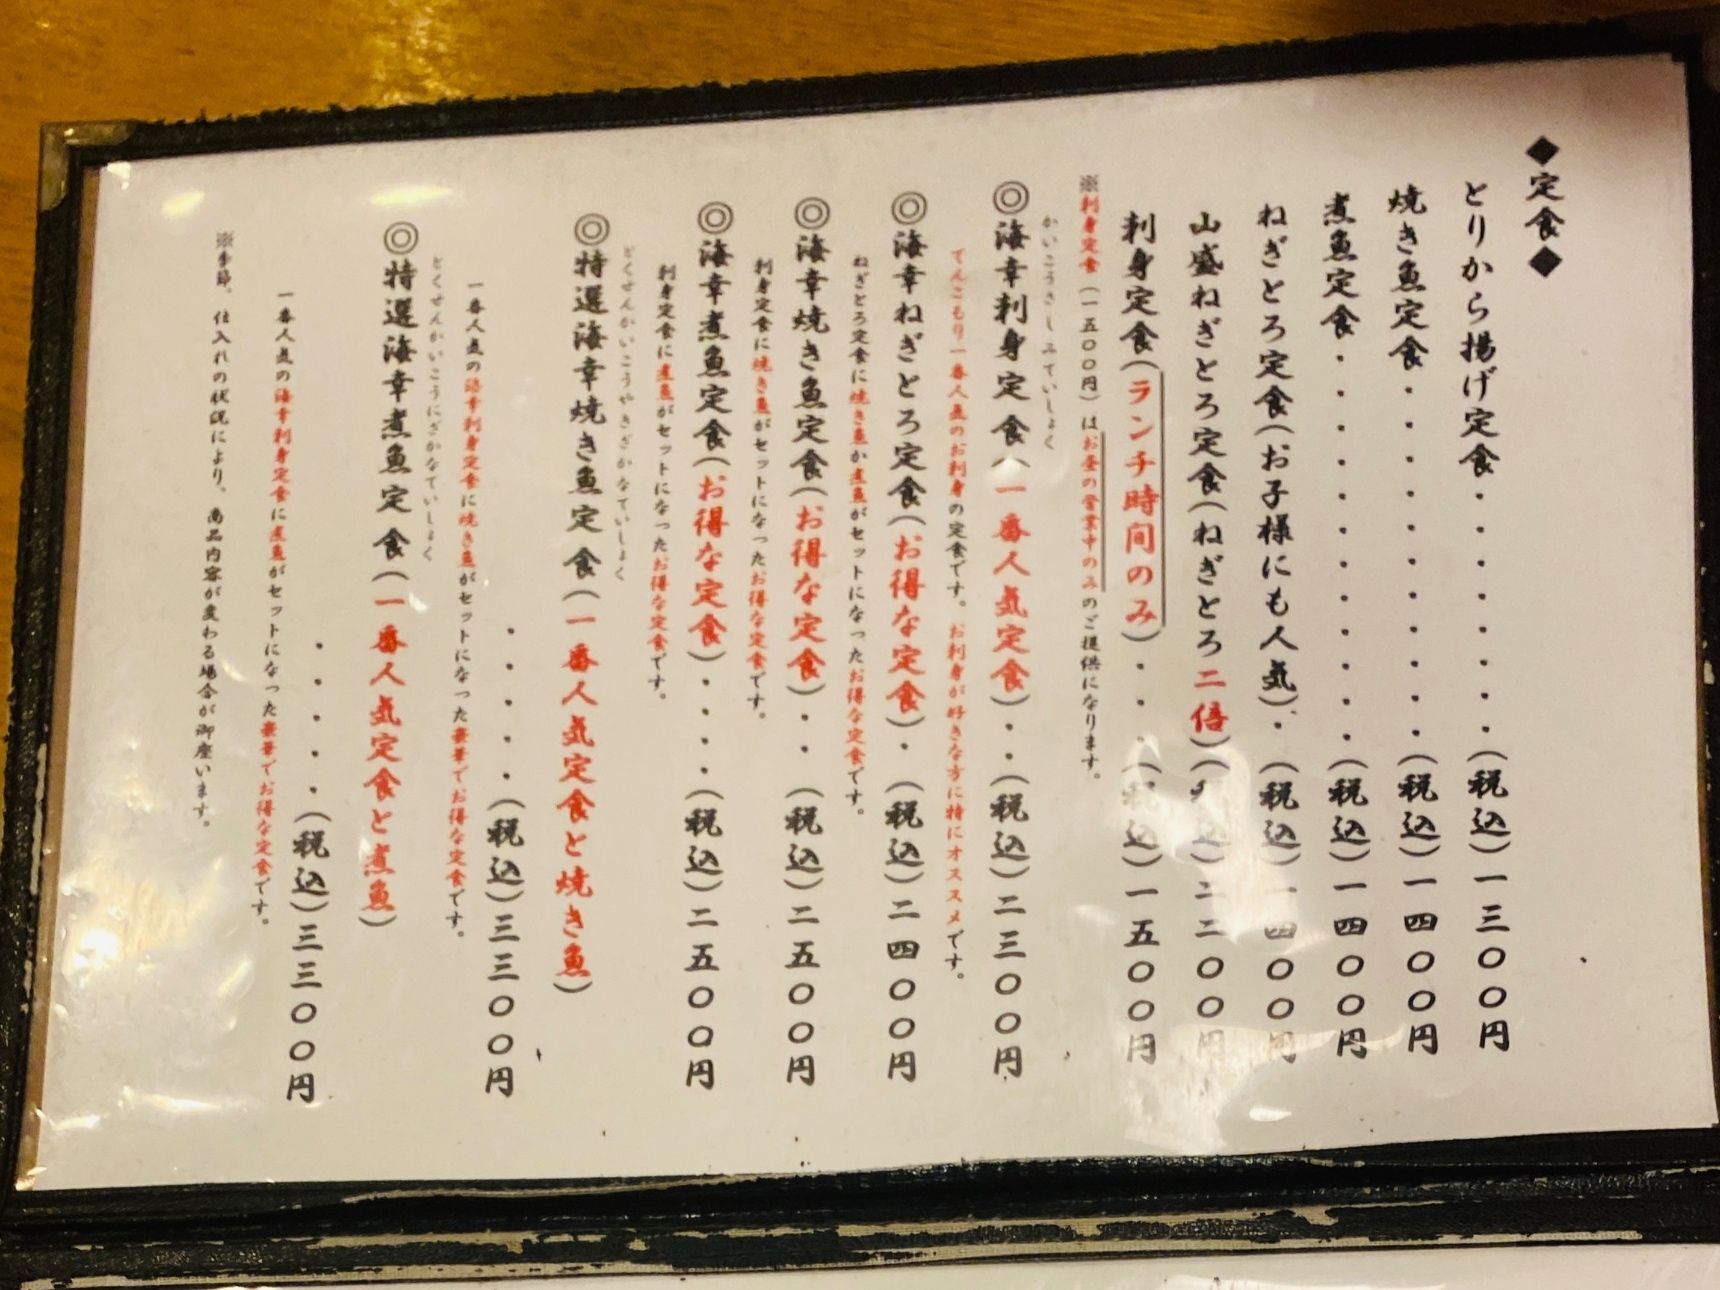 ◆定食◆
とりから揚げ定食・・・・・・・(税込)一三〇〇円
焼き魚定食・・・・・・・・・・・(税込)一四〇〇円
煮魚定食・・・・・・・・・・・・(税込)一四〇〇円
ねぎとろ定食(お子様にも人気)・(税込)一四〇〇円
山盛ねぎとろ定食(ねぎとろ二倍)(税込)二二〇〇円
刺身定食(ランチ時間のみ)・・・(税込)一五〇〇円
※刺身定食(一五〇〇円)はお昼の営業中のみのご提供になります。
かいこうさしみていしょく
◎海幸刺身定食(一番人気定食)・・(税込)二三〇〇円
てんこもり一番人気のお刺身の定食です。お刺身が好きな方に特にオススメです。
◎海幸ねぎとろ定食(お得な定食)・(税込)二四〇〇円
ねぎとろ定食に焼き魚か煮魚がセットになったお得な定食です。
◎海幸焼き魚定食(お得な定食)・・(税込)二五〇〇円
刺身定食に焼き魚がセットになったお得な定食です。
◎海幸煮魚定食(お得な定食)・・・・(税込)二五〇〇円
刺身定食に煮魚がセットになったお得な定食です。
とくせんかいこうやきざかなていしょく
◎特選海幸焼き魚定食(一番人気定食と焼き魚)
・・・・・(税込)三三〇〇円
一番人気の海幸刺身定食に焼き魚がセットになった豪華でお得な定食です。
とくせんかいこうにざかなていしょく
◎特選海幸煮魚定食(一番人気定食と煮魚)
・・・・・(税込)三三〇〇円
一番人気の海幸刺身定食に煮魚がセットになった豪華でお得な定食です。
※季節、仕入れの状況により、商品内容が変わる場合が御座います。